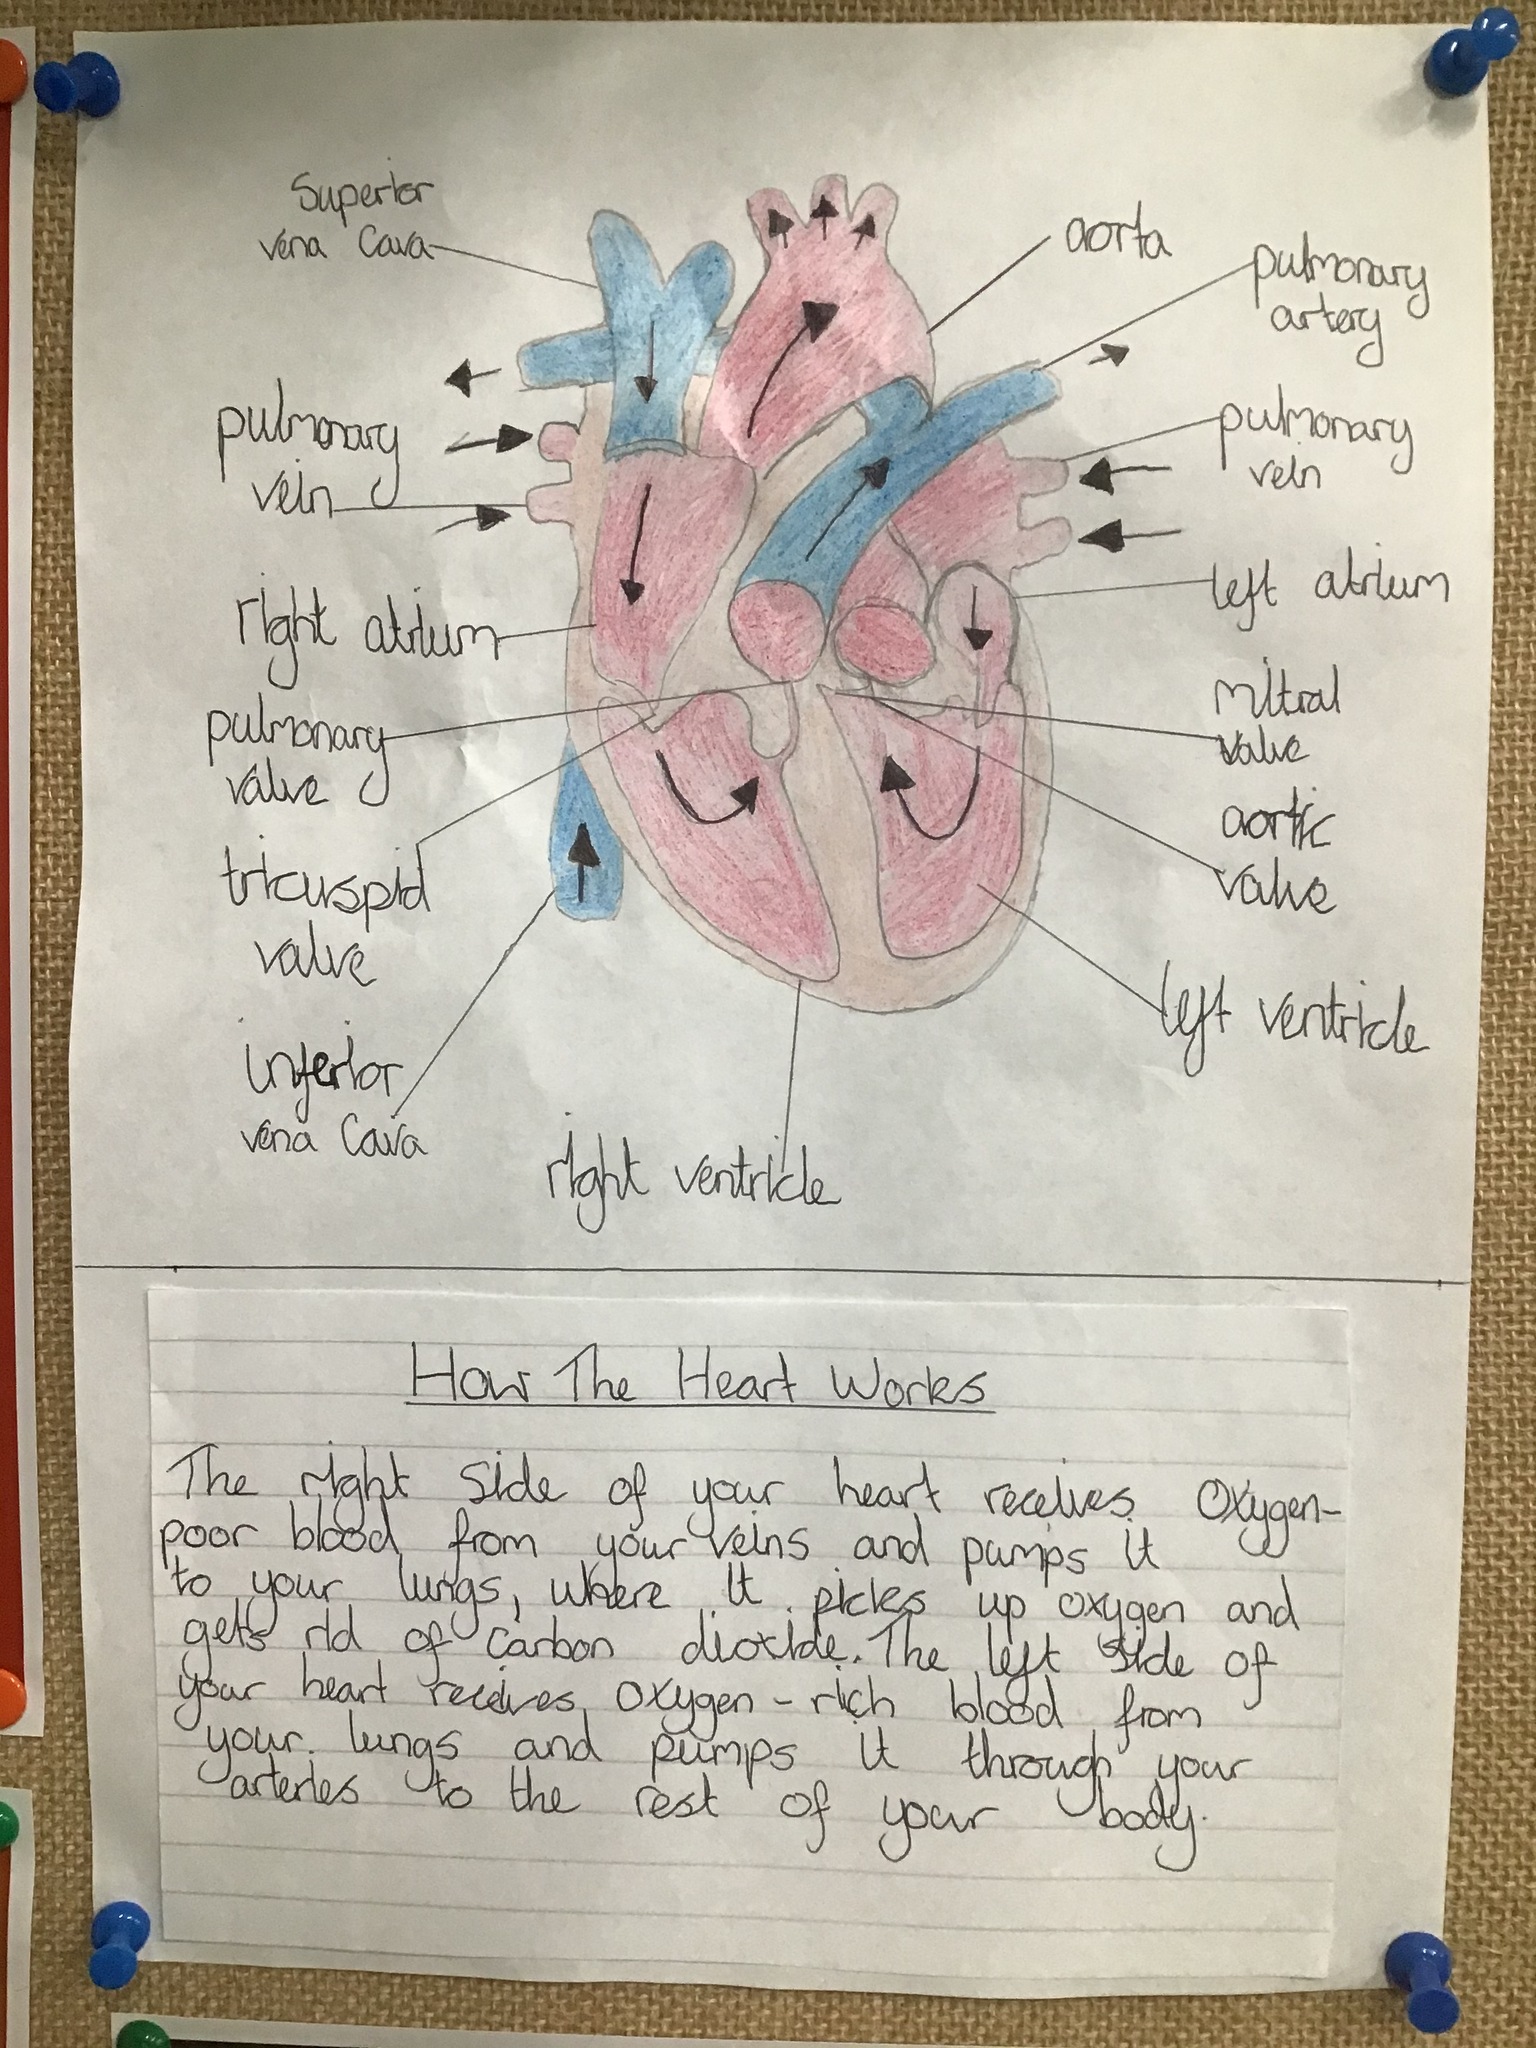 Superior
vena Cava
aorta
pulmonary
artery
pulmonary
vein
pulmonary
vein
left atrium
right atrium
mitral
valve
pulmonary
valve
aortic
valve
tricuspid
valve
left ventricle
inferior
vena Cava
right ventricle
How The Heart Works
The right side of your heart receives Oxygen-
poor blood from your veins and pumps it
to your lungs, where it picks up oxygen and
gets rid of carbon dioxide. The left side of
your heart receives oxygen-rich blood from
your lungs and pumps it through your
arteries to the rest of your body.